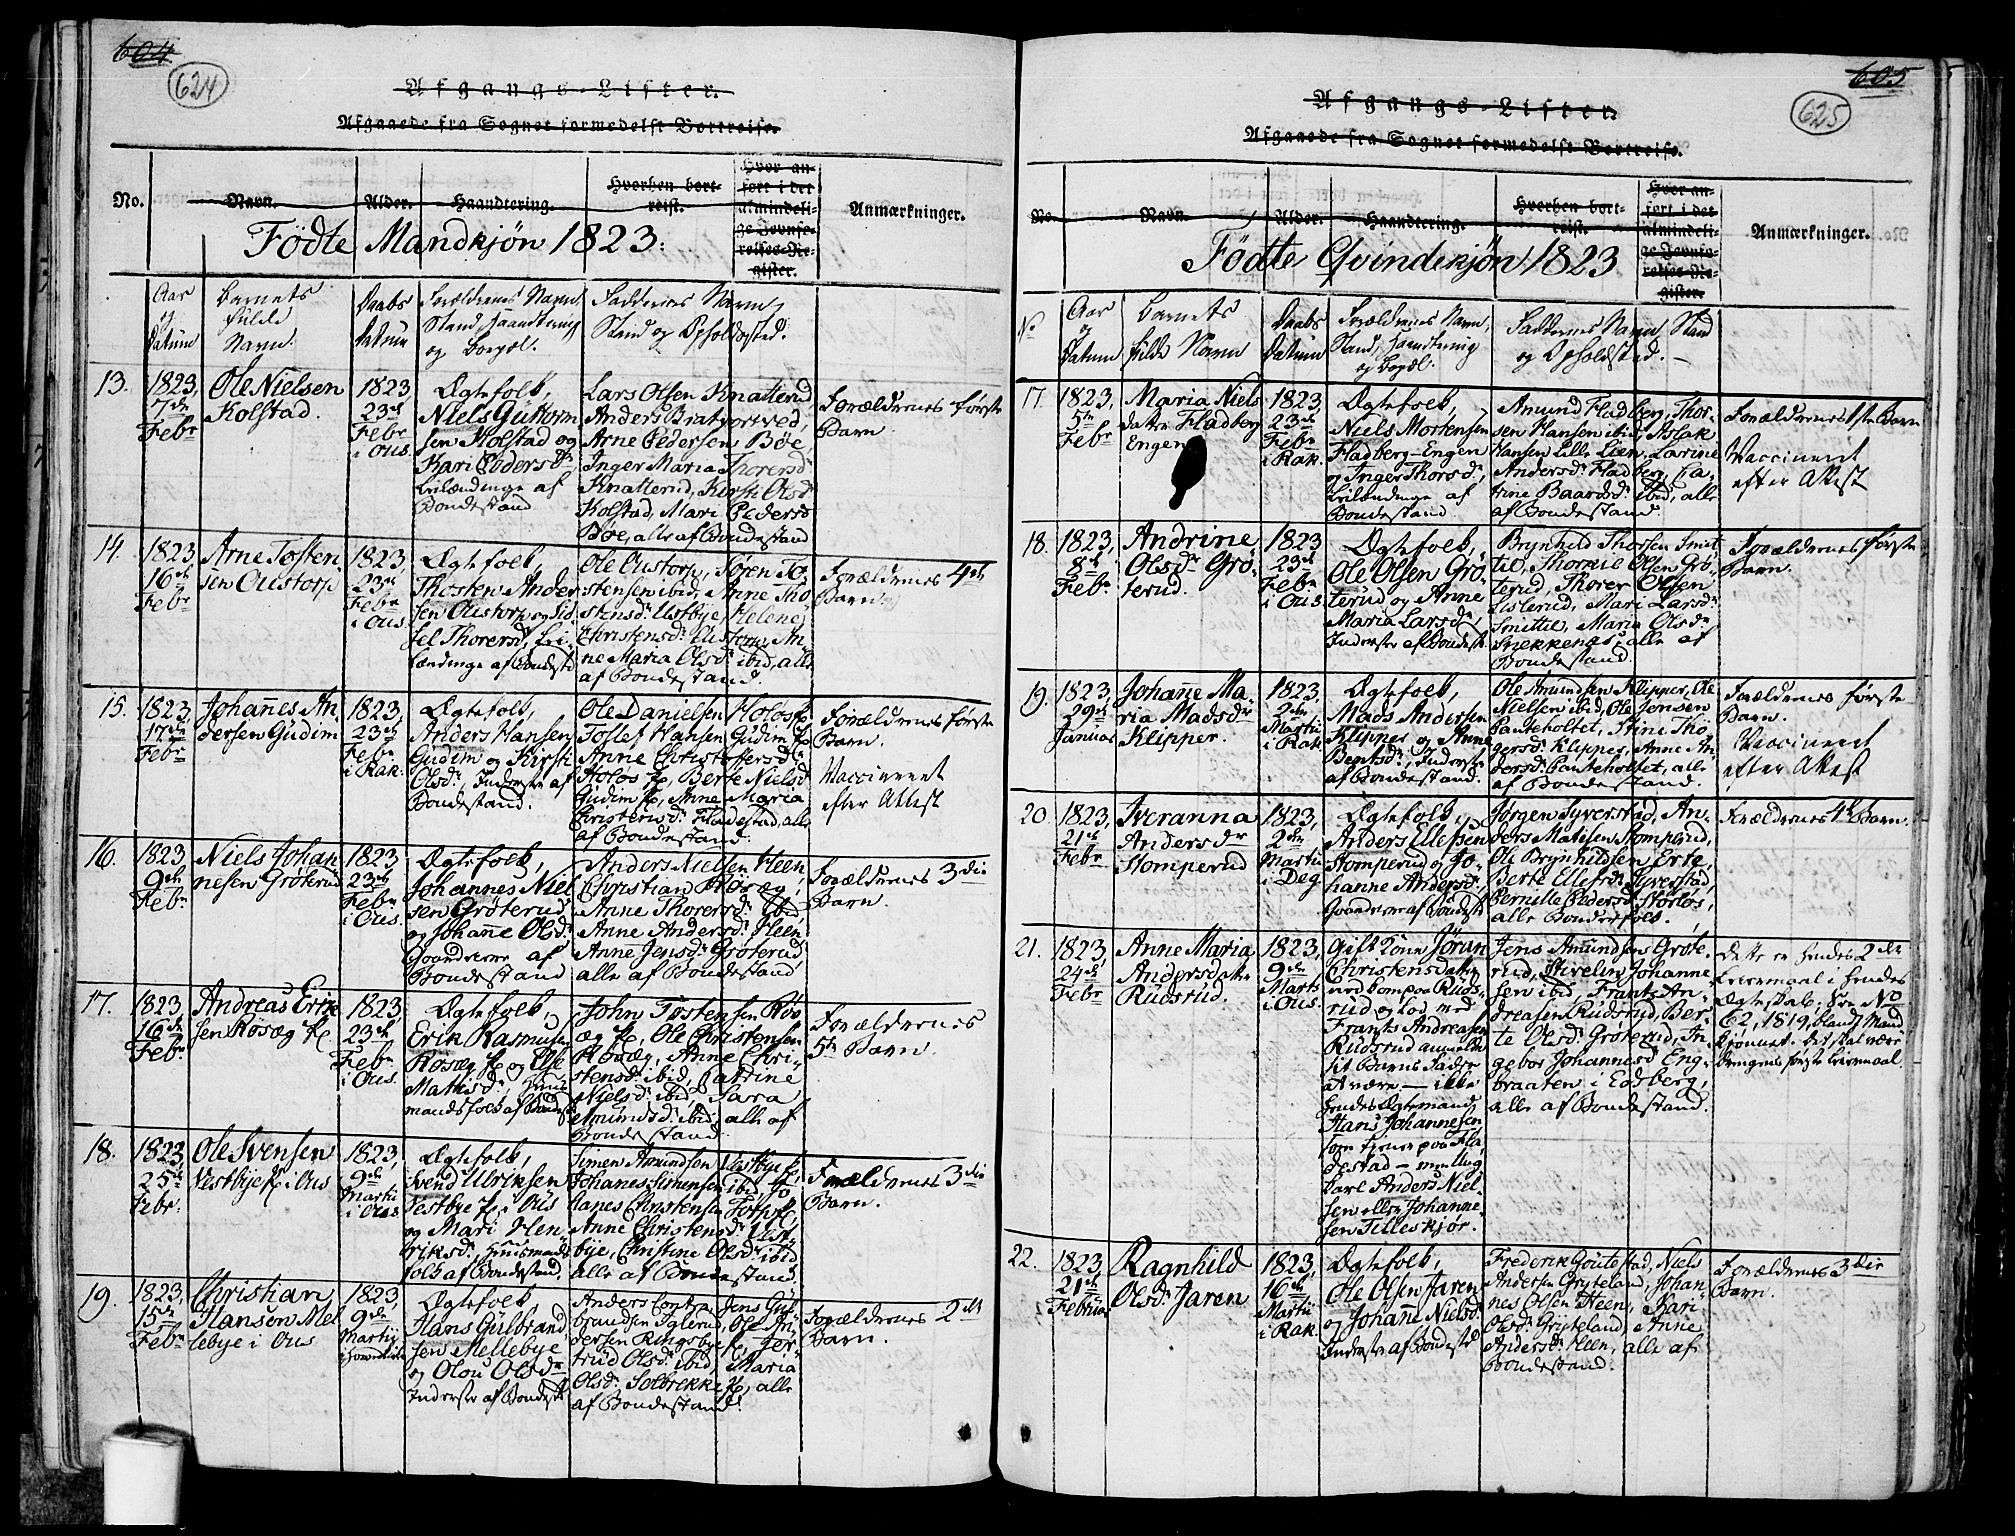 604
624
Afgangs-Lister.
Afgaaede fra Sognet formedelst Bortreise.
No.
Navn.
Alder.
Haandtering.
Hvorhen bort-
reist.
Hvor an-
ført i det
almindeli-
ge Jevnfø-
relses-Re-
gister.
Anmærkninger.
Födte Mandkjön 1823:
Aar
og
Datum
Barnets
fulde
Navn.
Daabs
Datum
Forældrenes Navn,
Stand, Haandtering
og Bopæl.
Faddernes Navn,
Stand og Opholdssted.
13.
1823,
7de
Febr
Ole Nielsen
Kolstad.
1823
23de
Febr
i Ous.
Ægtefolk,
Niels Guttorm
sen Kolstad og
Kari Pedersdr
Leilændinge af
Bondestand
Lars Olsen Knatterud
Anders Bratvortved,
Arne Pedersen Böe,
Inger Maria Thorersdr
Knatterud, Kirsti Olsd
Kolstad, Mari Pedersd
Böe, alle af Bondestand
Forældrenes første
Barn
14.
1823
16de
Febr
Arne Tosten-
sen Oustorp
1823,
23de
Febr
i Ous.
Ægtefolk,
Thosten Ander
sen Oustorp og Sid
sel Thorersdr, Lei-
lændinge af Bondest
Ole Oustorp, Sören To-
stensen ibid, Anne Tho
stensdr Ustbye, Helene
Christensdr Ustorp, An-
ne Maria Olsdr ibid, alle
af Bondestand.
Forældrenes 4de
Barn.
15.
1823,
17de
Febr
Johannes An
dersen Gudim
1823,
23de
Febr
i Rak.
Ægtefolk,
Anders Hansen
Gudim og Kirsti
Olsdr, Inderste af
Bondestand.
Ole Danielsen Holos
Tollef Hansen Gudim
Anne Christoffersdr
Holos, Berte Nielsd
Gudim, Anne Maria
Christensdr Fladestad, alle
af Bondestand.
Forældrenes første
Barn.
Vaccineret
efter Attest
16.
1823,
9de
Febr
Niels Johan
nesen Gröterud
1823
23de
Febr
i Ous.
Ægtefolk,
Johannes Niel
sen Gröterud
og Johanne Olsdr
Gaardmene af
Bondestand
Anders Nielsen Heen
Christian Rösæg,
Anne Thorersdr ibid,
Anne Andersdr Heen
Anne Jensdr Gröterud
alle af Bondestand
Forældrenes 3die
Barn.
17.
1823,
16de
Febr
Andreas Erik
sen Rösæg
1823
23de
Febr
i Ous.
Ægtefolk,
Erik Rasmusen
Rosæg og Else
Mathisdr, Huus
mandsfolk af Bondest
John Tostensen Rös
æg, Ole Christensen
Rösæg, Anne Chri-
stensdr ibid, Catrine
Nielsdr ibid, Sara
Amundsdr ibid, alle af
Bondestand.
Forældrenes
5te Barn.
18.
1823
25de
Febr.
Ole Svensen
Vestbye i Ous
1823,
9de
Martii
i Ous
Ægtefolk,
Svend Ulriksen
Festbye i Ous
og Mari Hen
riksdr, Huusmands
folk af Bondestand.
Simen Amundsen Vestbye,
Johanes Simensen ibid, Jo
hanes Christensen Toth,
Anne Christensdr Ust-
bye, Christine Olsdr ibid
alle af Bondestand.
Forældrenes 3die
Barn.
19.
1823,
15de
Febr
Christian
Hansen Mel
lebye i Ous
1823,
9de
Martii
Ægtefolk
Hans Gulbrand
sen Mellebye
og Olou Olsdr
Inderster af Bondest
Anders Contra Jens Gul
brandsen Toglerud, Ole An
dersen Ringsbye, Jer-
trud Olsdr ibid, Maria
Olsdr Solbrekke, alle
af Bondestand.
Forældrenes 2de
Barn.
605
625
Afgangs-Lister.
Afgaaede fra Sognet formedelst Bortreise.
No.
Navn.
Alder.
Haandtering.
Hvorhen bort-
reist.
Hvor an-
ført i det
almindeli-
ge Jevnfø-
relses-Re-
gister.
Anmærkninger.
Födte Qvindekjön 1823
No
Aar
og
Datum
Barnets
fulde Navn
Daabs
Datum
Forældrenes Navn,
Stand, Haandtering
og Bopæl.
Faddernes Navn, Stand
og Opholdsted.
17.
1823,
5te
Febr
Maria Niels
datter Fladberg
Engen
1823,
23de
Febr
i Rak.
Ægtefolk,
Niels Mortensen
Fladberg-Engen
og Inger Thorsdr,
Leilændinge af
Bondestand
Amund Fladberg, Thor-
sen Hansen ibid, Aslak
Hansen Lille Lien, Larine
Andersdr Fladberg, Ca-
trine Baardsdr ibid, alle
af Bondestand.
Forældrenes 1ste Barn
Vaccineret
efter Attest
18.
1823,
8de
Febr
Andrine
Olsdr Grö-
terud.
1823
23de
Febr
i Ous.
Ægtefolk,
Ole Olsen Grö-
terud og Anne
Maria Larsdr,
Inderster af Bondest
Brynhild Thorsen Smit-
til, Thorkil Olsen Grö-
terud, Thorer Olsen
Listerud, Mari Larsdr
Smittil, Maria Olsdr
Snekkenes, alle af
Bondestand.
Forældrenes første
Barn.
19.
1823
29de
Januar
Johanne Ma-
ria Madsdr
Klipper.
1823,
2den
Martii
i Rak
Ægtefolk,
Mads Andersen
Klipper og Anne
Bentsdr, Inderste
af Bondestand.
Ole Amundsen Klipper, Ole
Nielsen ibid, Ole Jensen
Panteholtet, Stine Tho-
gersdr Klipper, Anne An-
dersdr Panteholtet, alle
af Bondestand.
Forældrenes første
Barn.
Vaccineret
efter Attest
20
1823,
21de
Febr
Iveranna
Andersdr
Homperud
1823,
2den
Martii
i Deg
Ægtefolk,
Anders Ellefsen
Homperud og Jo-
hanne Andersdr,
Gaardmene af Bondest
Jørgen Syverstad, An-
ders Matisen Homperud,
Ole Brynhildsen Erte,
Berte Ellefsdr Syverstad,
Pernille Pedersdr Storlos,
alle Bonderfolk.
Forældrenes 4de Barn.
21.
1823,
24de
Febr
Anne Maria
Andersdatter
Rudsrud.
1823,
9de
Marts
i Ous.
Gift Kone Jöran
Christensdatter
ved bom paa Ruds-
rud og Lod med
Frants Andreasen
Rudsrud anmelde
sit Barns Fader
at være — ikke
hendes Ægtemand,
Hans Johannesen
som tjener paa Fla-
destad — men Ung
karl Anders Niel-
sen eller Johanne-
sen Tilleskjör.
Jens Amundsens Gröte-
rud, Hivelin Johanne
sen ibid, Frants An-
dreasen Rudsrud, Ber-
te Olsdr Gröterud, In-
gebor Johannesdr Eng-
braaten i Edsberg,
alle af Bondestand.
Dette er hendes 2de
Leiermaal i hendes
Ægteskab; See No
62, 1819, blandt Mand
kjönnet. Det skal være
drengens første Leiermaal
22.
1823,
21de
Februar
Ragnhild
Olsdr Jaren
1823,
16de
Martii
i Rak.
Ægtefolk,
Ole Olsen Jaren
og Johanne Nielsdr
Inderster af Bondestd
Frederik Goutestad, Niels
Andersen Gryteland, Johan-
nes Olsen Heen, Kari
Olsdr Gryteland, Anne
Andersdr Heen, alle af
Bondestand.
Forældrenes 3die
Barn.